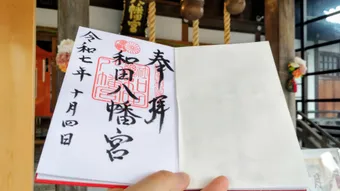 奉拝
和田八幡宮
令和七年十月四日